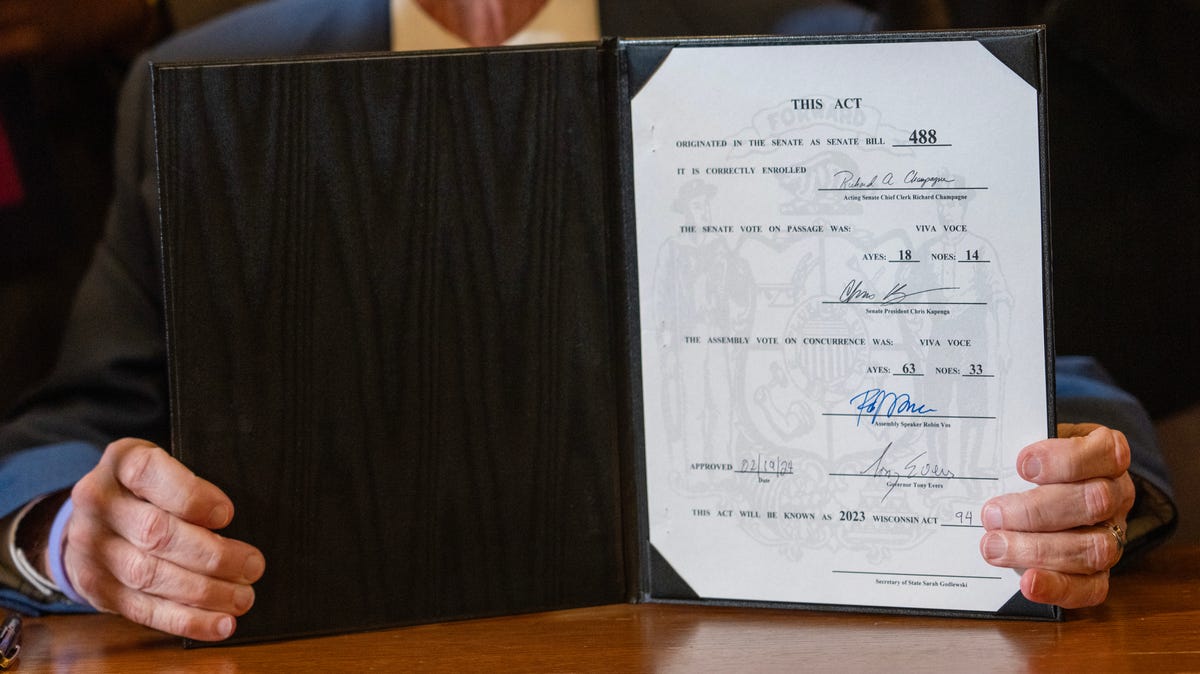 THIS ACT
FORWARD
ORIGINATED IN THE SENATE AS SENATE BILL 488
IT IS CORRECTLY ENROLLED Richard A. Champagne
Acting Senate Chief Clerk Richard Champagne
THE SENATE VOTE ON PASSAGE WAS: VIVA VOCE
AYES: 18 NOES: 14
Senate President Chris Kapenga
THE ASSEMBLY VOTE ON CONCURRENCE WAS: VIVA VOCE
AYES: 63 NOES: 33
Assembly Speaker Robin Vos
APPROVED 02/19/24 Tony Evers
Date Governor Tony Evers
THIS ACT WILL BE KNOWN AS 2023 WISCONSIN ACT 94
Secretary of State Sarah Godlewski